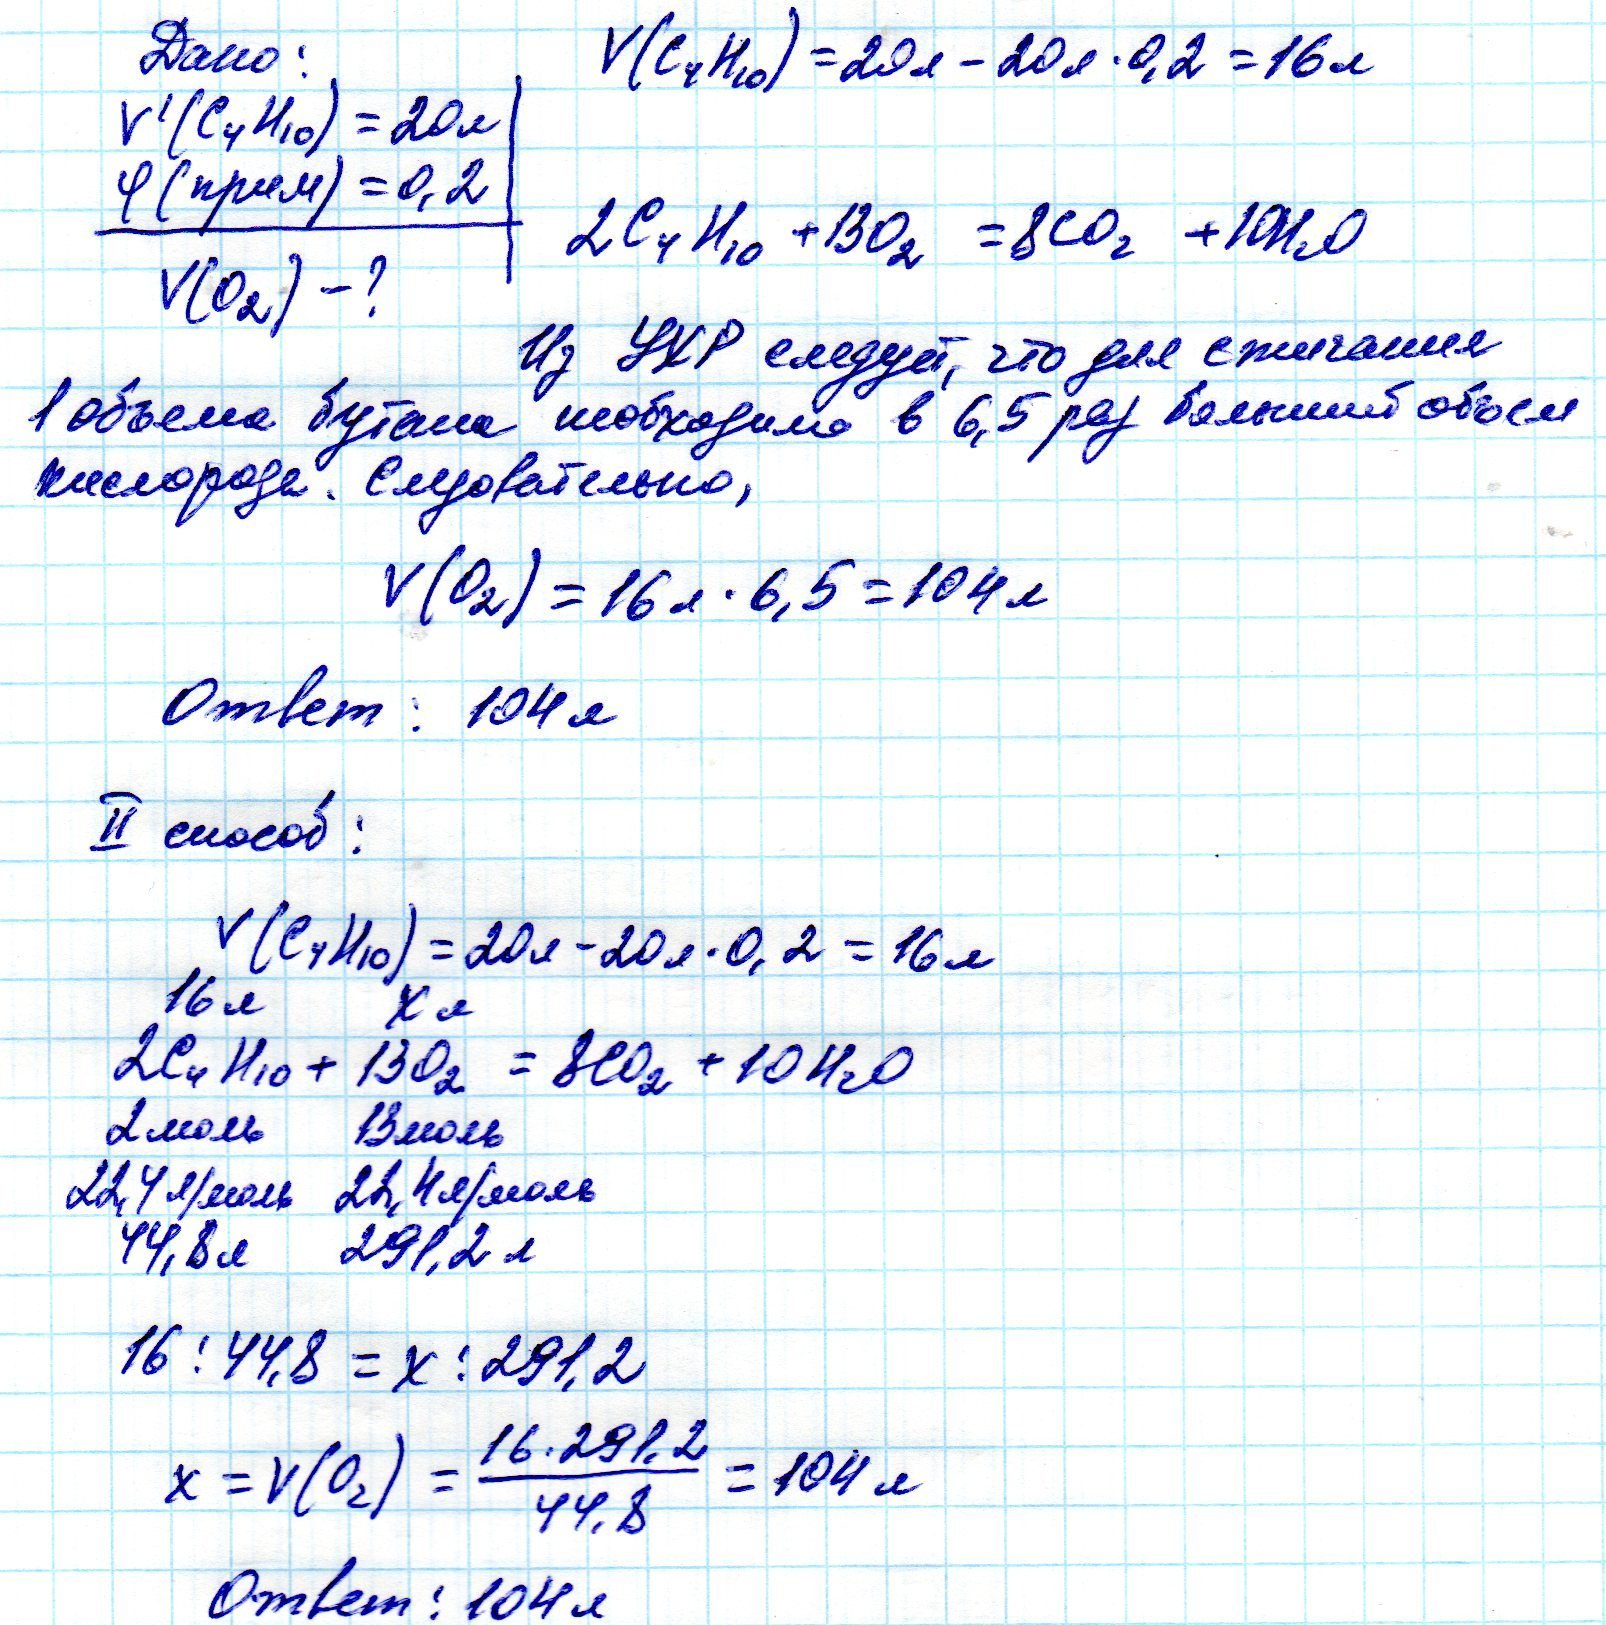 Дано:
V'(C₄H₁₀) = 20л
φ(прим) = 0,2
V(O₂) - ?
V(C₄H₁₀) = 20л - 20л · 0,2 = 16л
2C₄H₁₀ + 13O₂ = 8CO₂ + 10H₂O
Из УХР следует, что для сжигания
1 объема бутана необходимо в 6,5 раз больший объем
кислорода. Следовательно,
V(O₂) = 16л · 6,5 = 104л
Ответ: 104л
II способ:
V(C₄H₁₀) = 20л - 20л · 0,2 = 16л
16л xл
2C₄H₁₀ + 13O₂ = 8CO₂ + 10H₂O
2моль 13моль
22,4л/моль 22,4л/моль
44,8л 291,2л
16 : 44,8 = x : 291,2
x = V(O₂) = 16 · 291,2 / 44,8 = 104л
Ответ: 104л